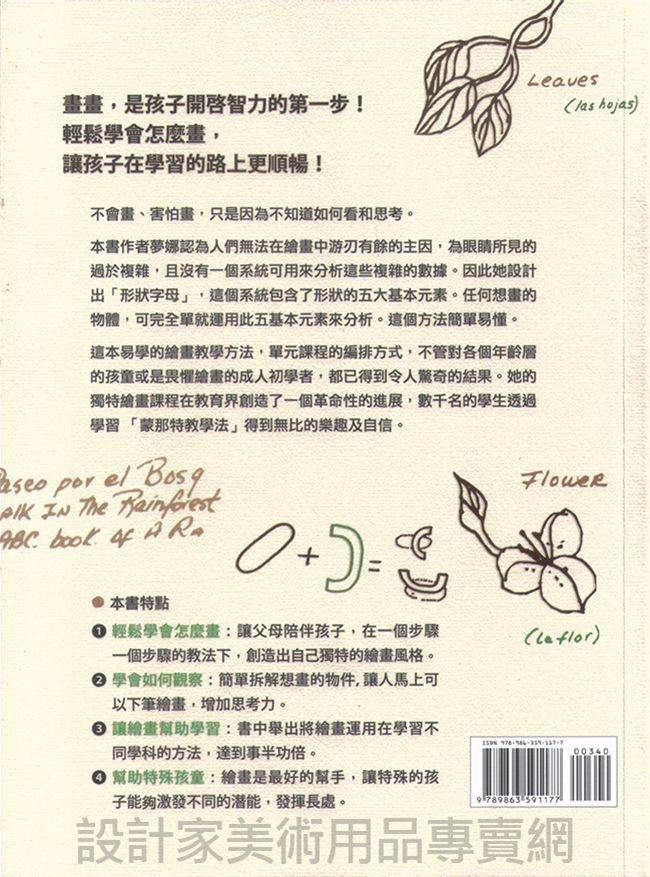 Leaves
(las hojas)
畫畫，是孩子開啓智力的第一步！
輕鬆學會怎麼畫，
讓孩子在學習的路上更順暢！
不會畫、害怕畫，只是因為不知道如何看和思考。
本書作者夢娜認為人們無法在繪畫中游刃有餘的主因，為眼睛所見的
過於複雜，且沒有一個系統可用來分析這些複雜的數據。因此她設計
出「形狀字母」，這個系統包含了形狀的五大基本元素。任何想畫的
物體，可完全單就運用此五基本元素來分析。這個方法簡單易懂。
這本易學的繪畫教學方法，單元課程的編排方式，不管對各個年齡層
的孩童或是畏懼繪畫的成人初學者，都已得到令人驚奇的結果。她的
獨特繪畫課程在教育界創造了一個革命性的進展，數千名的學生透過
學習 「蒙那特教學法」得到無比的樂趣及自信。
aseo por el Bosq
alk In The Rainforest
ABC. book of A Ra
Flower
(la flor)
+ =
● 本書特點
❶ 輕鬆學會怎麼畫：讓父母陪伴孩子，在一個步驟
一個步驟的教法下，創造出自己獨特的繪畫風格。
❷ 學會如何觀察：簡單拆解想畫的物件, 讓人馬上可
以下筆繪畫，增加思考力。
❸ 讓繪畫幫助學習：書中舉出將繪畫運用在學習不
同學科的方法，達到事半功倍。
❹ 幫助特殊孩童：繪畫是最好的幫手，讓特殊的孩
子能夠激發不同的潛能，發揮長處。
ISBN 978-986-359-117-7
00340
9 789863 591177
設計家美術用品專賣網